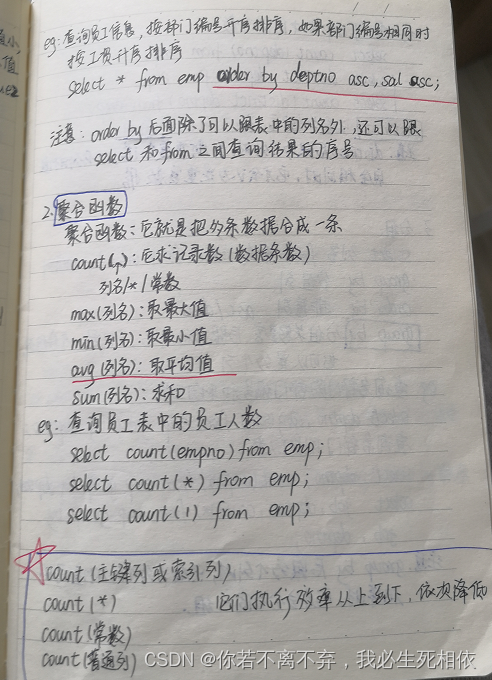 eg: 查询员工信息, 按部门编号升序排序, 如果部门编号相同时
按工资升序排序
select * from emp order by deptno asc, sal asc;
注意: order by 后面除了可以跟表中的列名外, 还可以跟
select 和 from 之间查询结果的序号
2. 聚合函数
聚合函数: 它就是把多条数据合成一条
count( ): 它求记录数 (数据条数)
列名/*/常数
max(列名): 取最大值
min(列名): 取最小值
avg(列名): 取平均值
sum(列名): 求和
eg: 查询员工表中的员工人数
select count(empno) from emp;
select count(*) from emp;
select count(1) from emp;
count(主键列或索引列)
count(*) 它们执行效率从上到下, 依次降低
count(常数)
count(普通列)
CSDN @你若不离不弃，我必生死相依